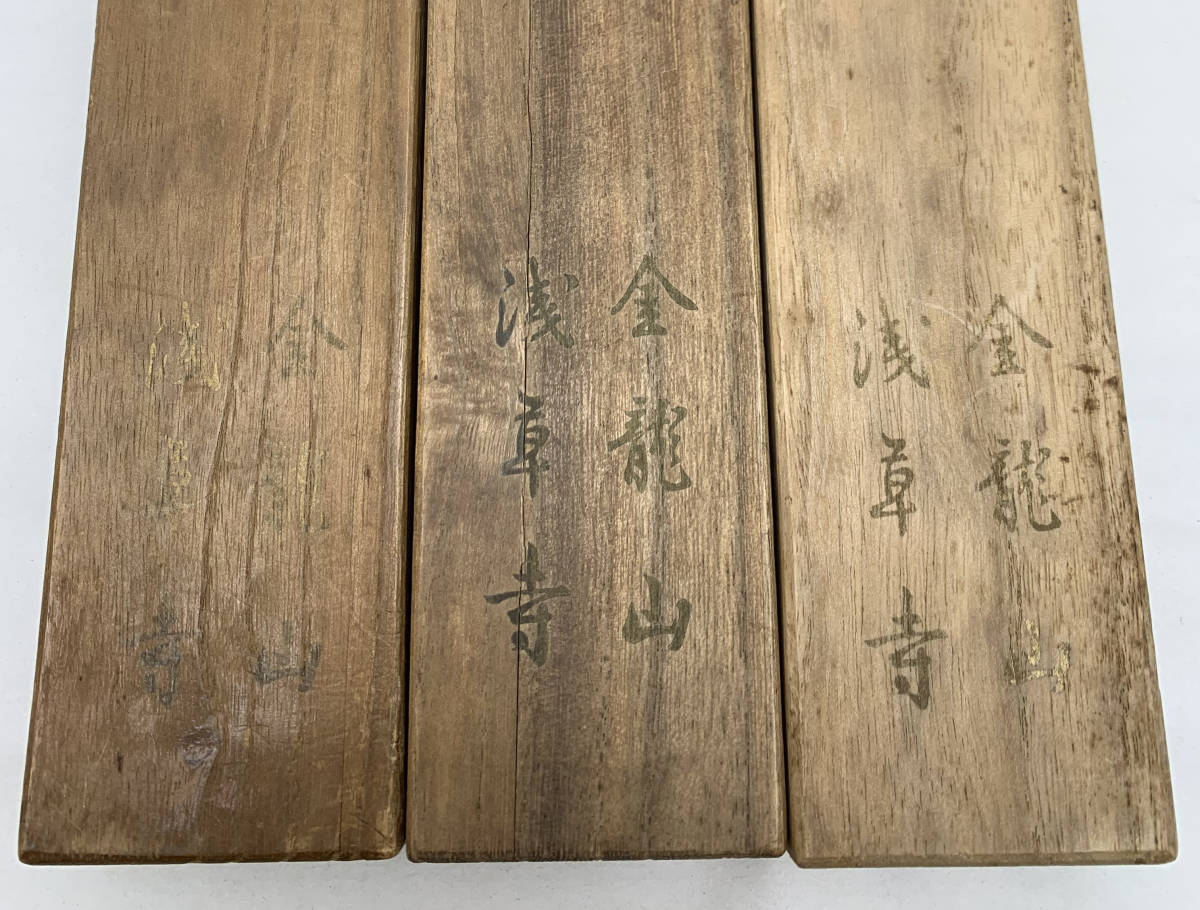 金龍山
浅草寺
金龍山
浅草寺
金龍山
浅草寺